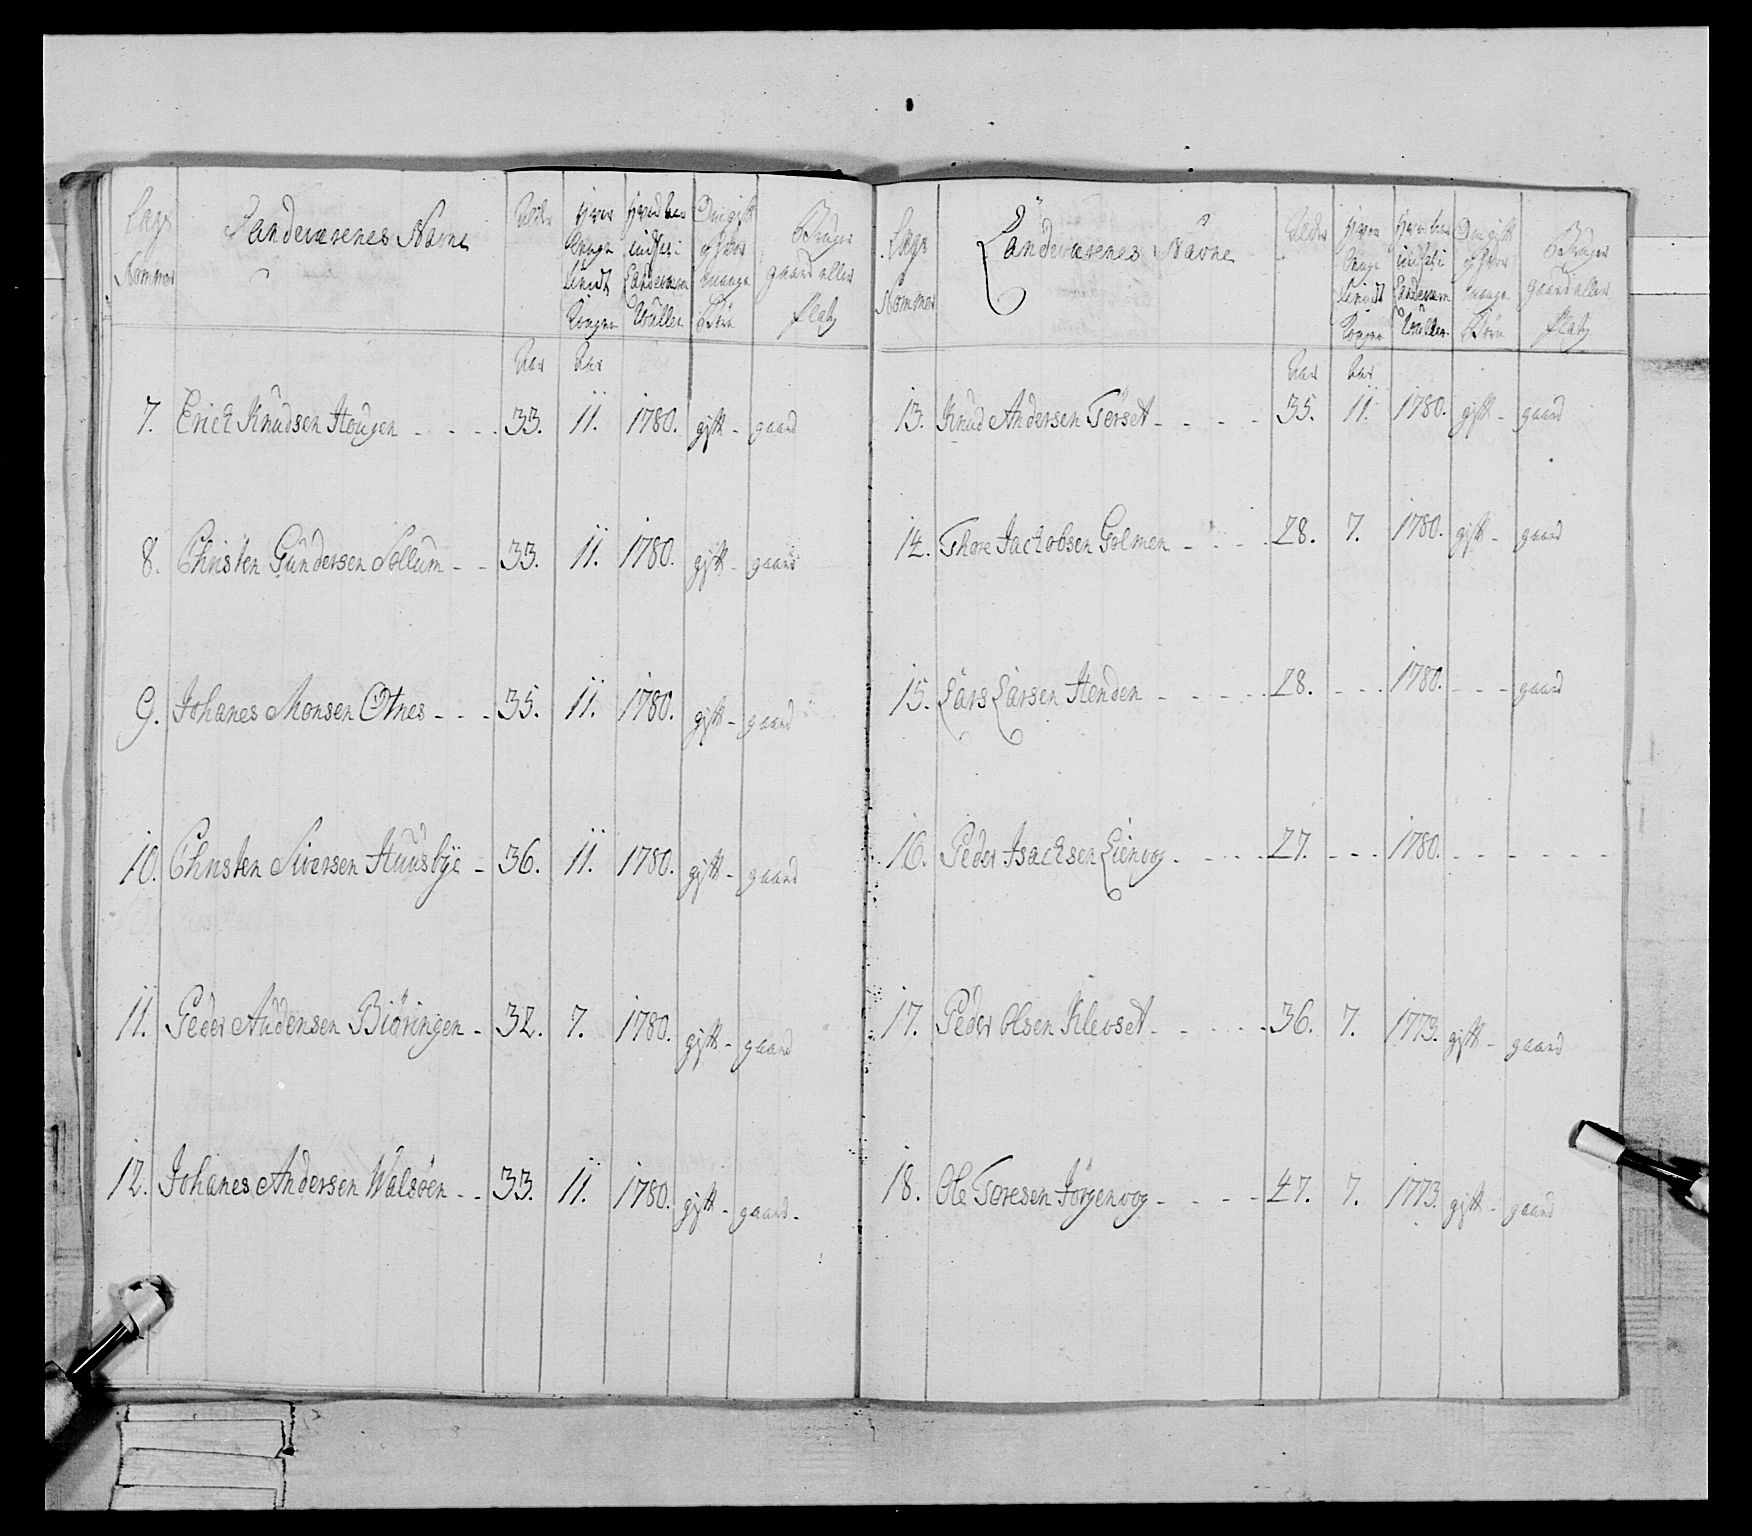 Lægs Nommer | Landeværenes Navne | Alder | Hvor lenge tient Kongen | Hvad Aar indsat i Landeværn Rullen | Om gift og hvor mange Børn | Bruger gaard eller Platz
Aar | Aar
7. Erick Knudsen Hougen - - - - 33. 11. 1780. gift - gaard
8. Christen Gundersen Sollum - - 33. 11. 1780. gift - gaard
9. Johanes Monsen Otnes - - - 35. 11. 1780. gift - gaard
10. Christen Siversen Huusbye - 36. 11. 1780. gift - gaard
11. Peder Audensen Biöringen - 32. 7. 1780. gift - gaard
12. Johanes Andersen Walsöen - - 33. 11. 1780. gift - gaard -
Lægs Nommer | Landeværenes Navne | Alder | Hvor lenge tient Kongen | Hvor Aar indsat i Landeværn Rullen | Om gift og hvor mange Børn | Bruger gaard eller Platz
Aar | Aar
13. Knud Andersen Törset - - - - 35. 11. 1780. gift - gaard
14. Thore Jackobsen Golmen - - - 28. 7. 1780. gift - gaard
15. Lars Larsen Henden - - - - - 28. - - - 1780. - - - gaard
16. Peder Isachsen Lienvog - - - - 27. - - - 1780. - - - - - -
17. Peder Olsen Klevset - - - - - 36. 7. 1773. gift - gaard
18. Ole Toresen Jörgenvog - - - - 47. 7. 1773. gift - gaard